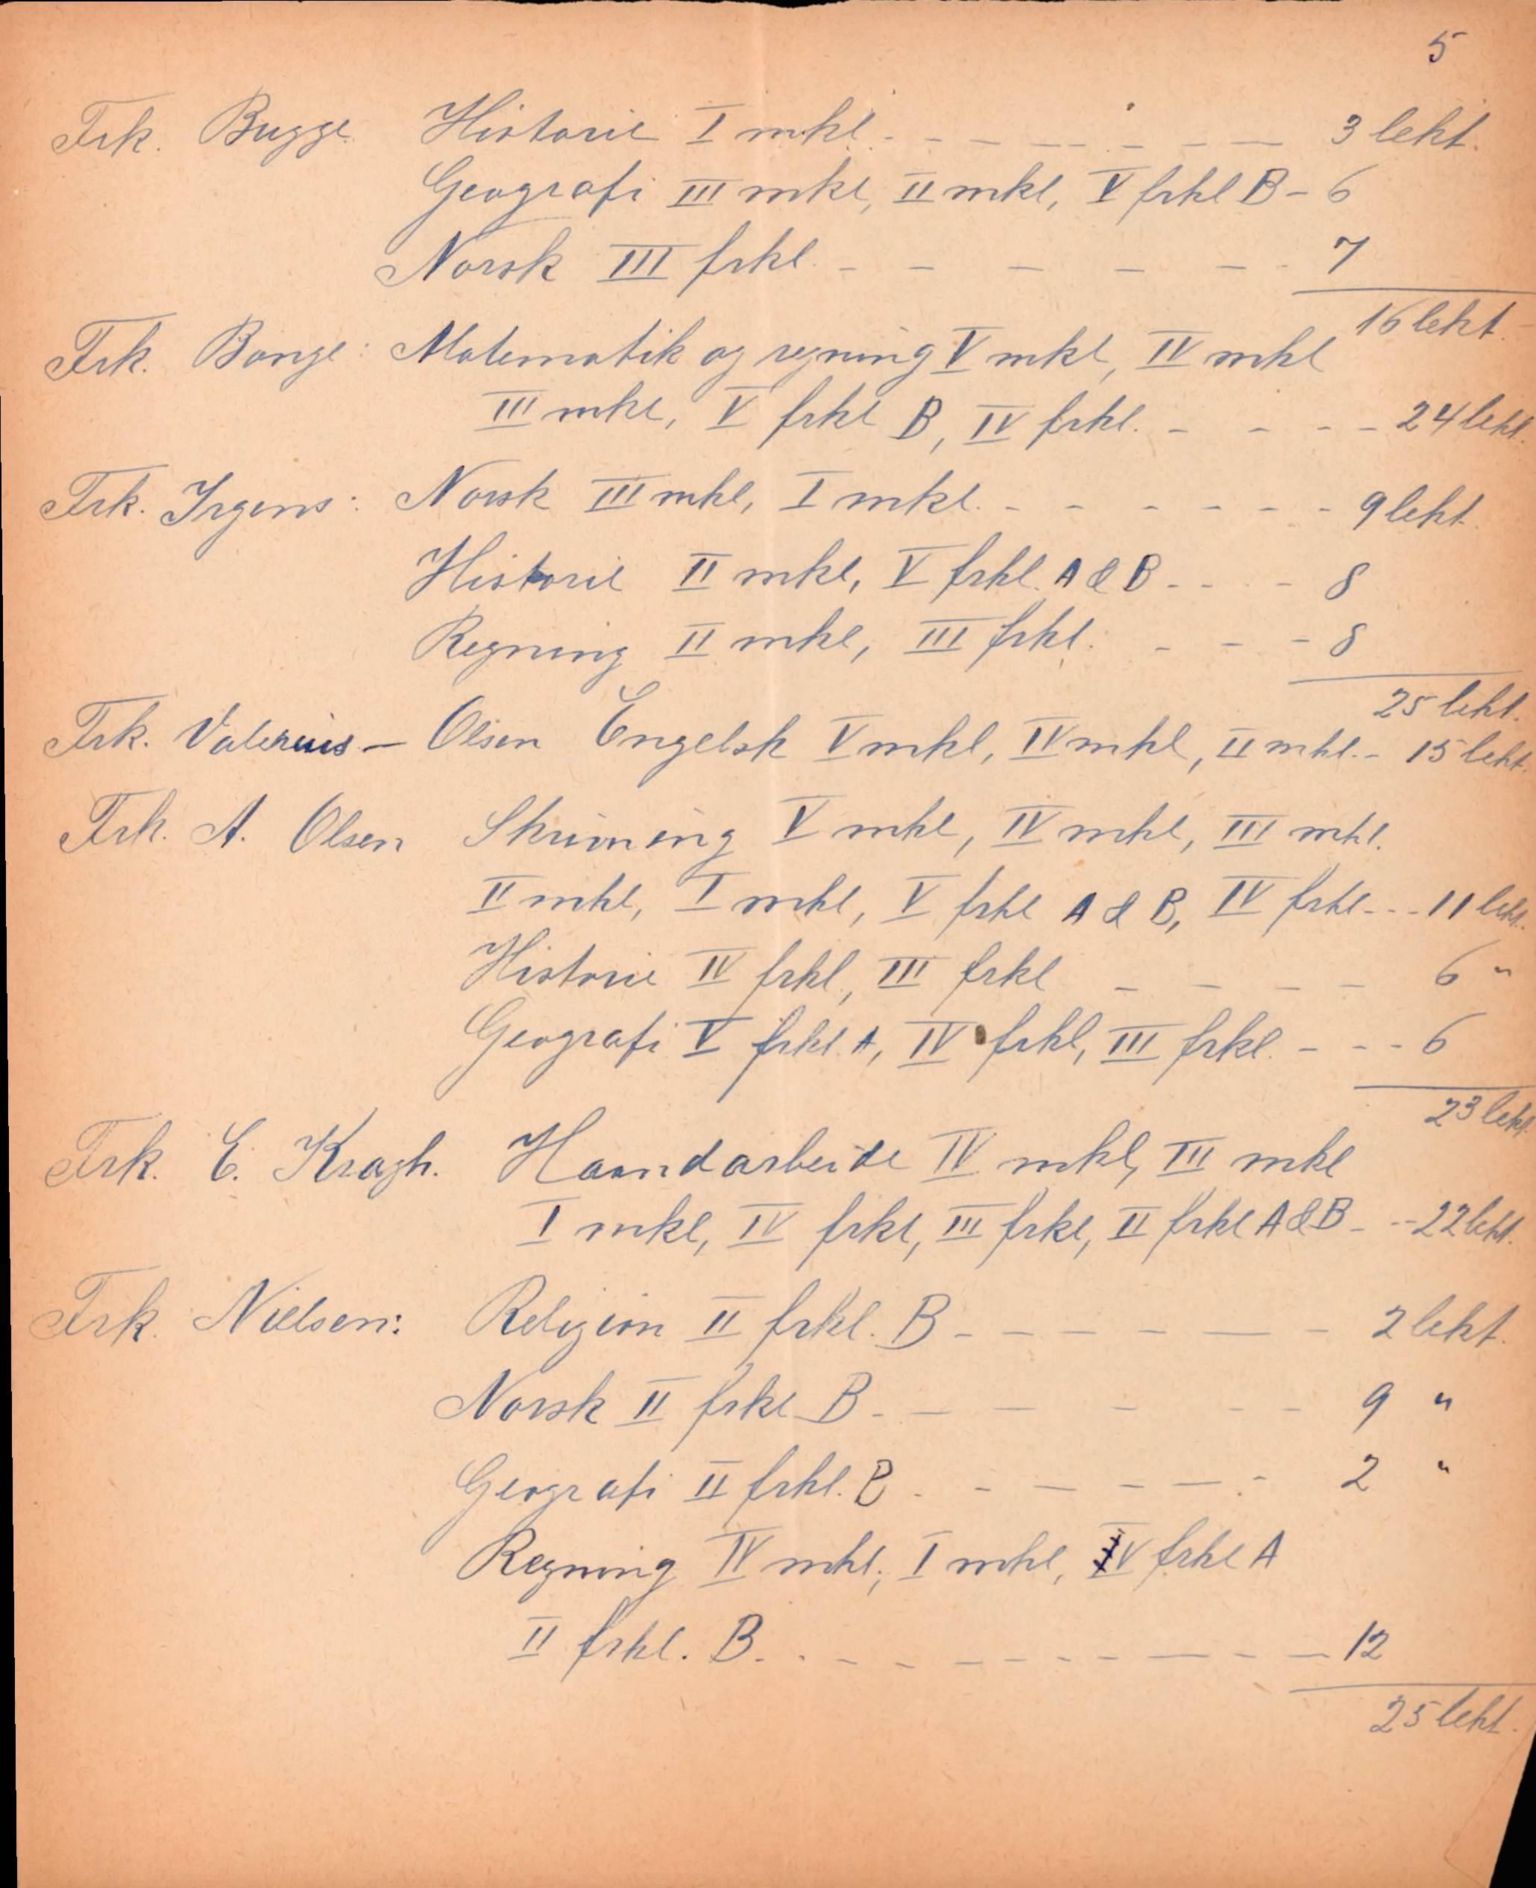 5
Frk. Bugge Historie I mkl. - - - - - - - 3 lekt.
Geografi III mkl, II mkl, V frkl B - 6
Norsk III frkl. - - - - - - 7
16 lekt.
Frk. Bonge: Matematik og regning V mkl, IV mkl
III mkl, V frkl B, IV frkl. - - - - 24 lekt.
Frk. Irgens: Norsk III mkl, I mkl. - - - - - - 9 lekt.
Historie II mkl, V frkl. A & B - - - - 8
Regning II mkl, III frkl. - - - 8
25 lekt.
Frk. Valerius - Olsen Engelsk V mkl, IV mkl, II mkl. - 15 lekt.
Frk. A. Olsen Skrivning V mkl, IV mkl, III mkl.
II mkl, I mkl, V frkl A & B, IV frkl - - - 11 lekt.
Historie IV frkl, III frkl - - - - - 6 "
Geografi V frkl. A, IV frkl, III frkl. - - - 6
23 lekt.
Frk. E. Kragh. Haandarbeide IV mkl, III mkl
I mkl, IV frkl, III frkl, II frkl A & B - - - 22 lekt.
Frk. Nielsen: Religion II frkl. B - - - - - - 2 lekt.
Norsk II frkl B - - - - - - 9 "
Geografi II frkl. B - - - - - - 2 "
Regning IV mkl, I mkl, IV frkl A
II frkl. B. - - - - - - - - - 12
25 lekt.